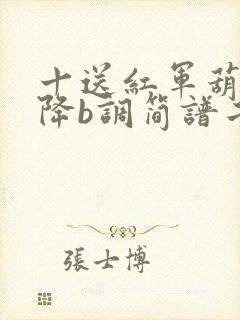 十送紅軍葫
降b調簡譜
張士博